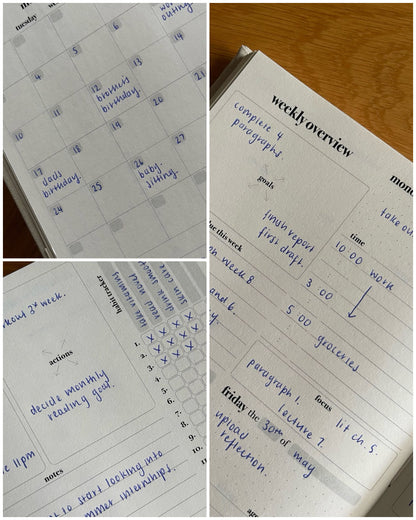 tuesday
outing
5
6
14
4
12
13
brothers
birthday.
21
10
11
19
20
27
17
18
26
dads
birthday.
25
baby-
sitting.
24
workout 3x week.
actions
decide monthly
reading goal.
11pm
notes
to start looking into
summer internships.
habit tracker
take vitamins
read
drink
skin care
1. X X X
2. X X X
3. X X X
4.
5.
6.
7.
8.
9.
10.
weekly overview
complete 4
paragraphs.
goals
finish report
first draft.
due this week
week 8
and 6.
time
10.00 work
3.00
5.00 groceries
paragraph 1,
lecture 2
focus
lit ch. 5.
friday the 30th of may
upload
reflection.